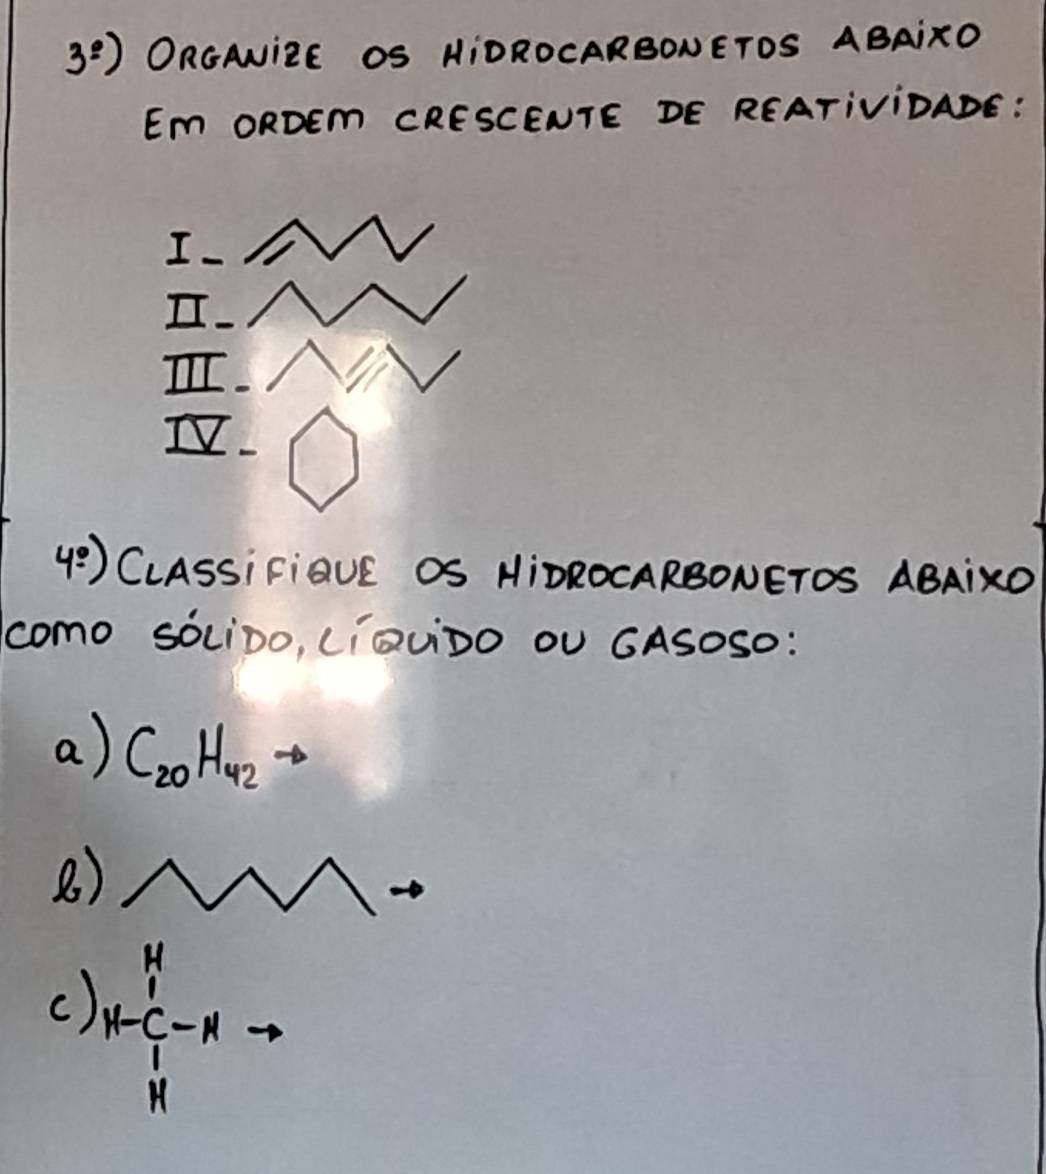 3º) ORGANIZE OS HIDROCARBONETOS ABAIXO
EM ORDEM CRESCENTE DE REATIVIDADE:
I-
II-
III-
IV-
4º) CLASSIFIQUE OS HIDROCARBONETOS ABAIXO
COMO SÓLIDO, LÍQUIDO OU GASOSO:
a) C₂₀H₄₂ →
b) →
H
c) H-C-H →
H